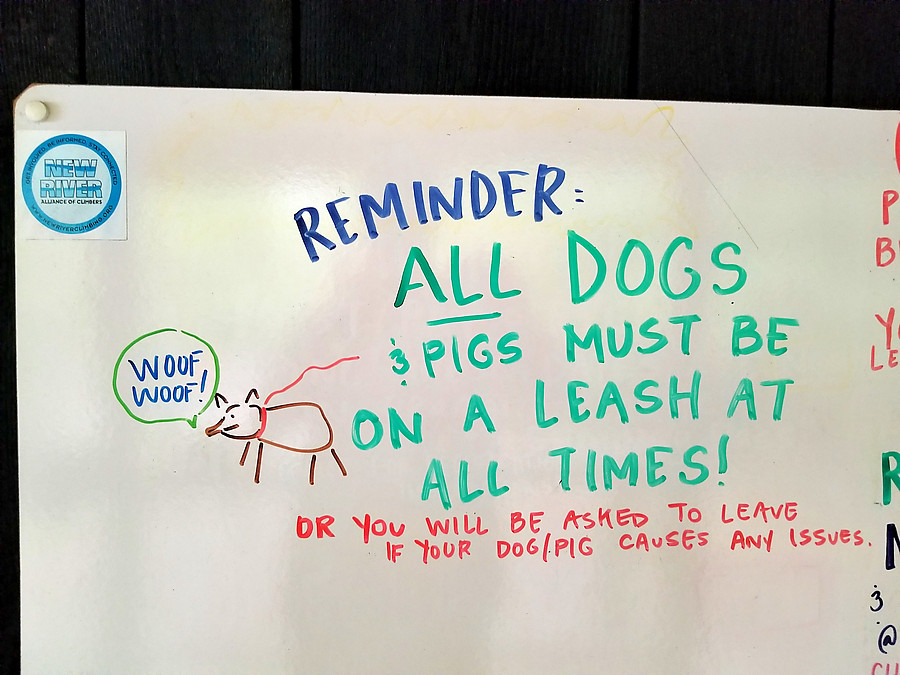 GET INVOLVED. BE INFORMED. STAY CONNECTED
NEW
RIVER
ALLIANCE OF CLIMBERS
WWW.NEWRIVERCLIMBING.ORG
REMINDER:
ALL DOGS
& PIGS MUST BE
ON A LEASH AT
ALL TIMES!
WOOF
WOOF!
OR YOU WILL BE ASKED TO LEAVE
IF YOUR DOG/PIG CAUSES ANY ISSUES.